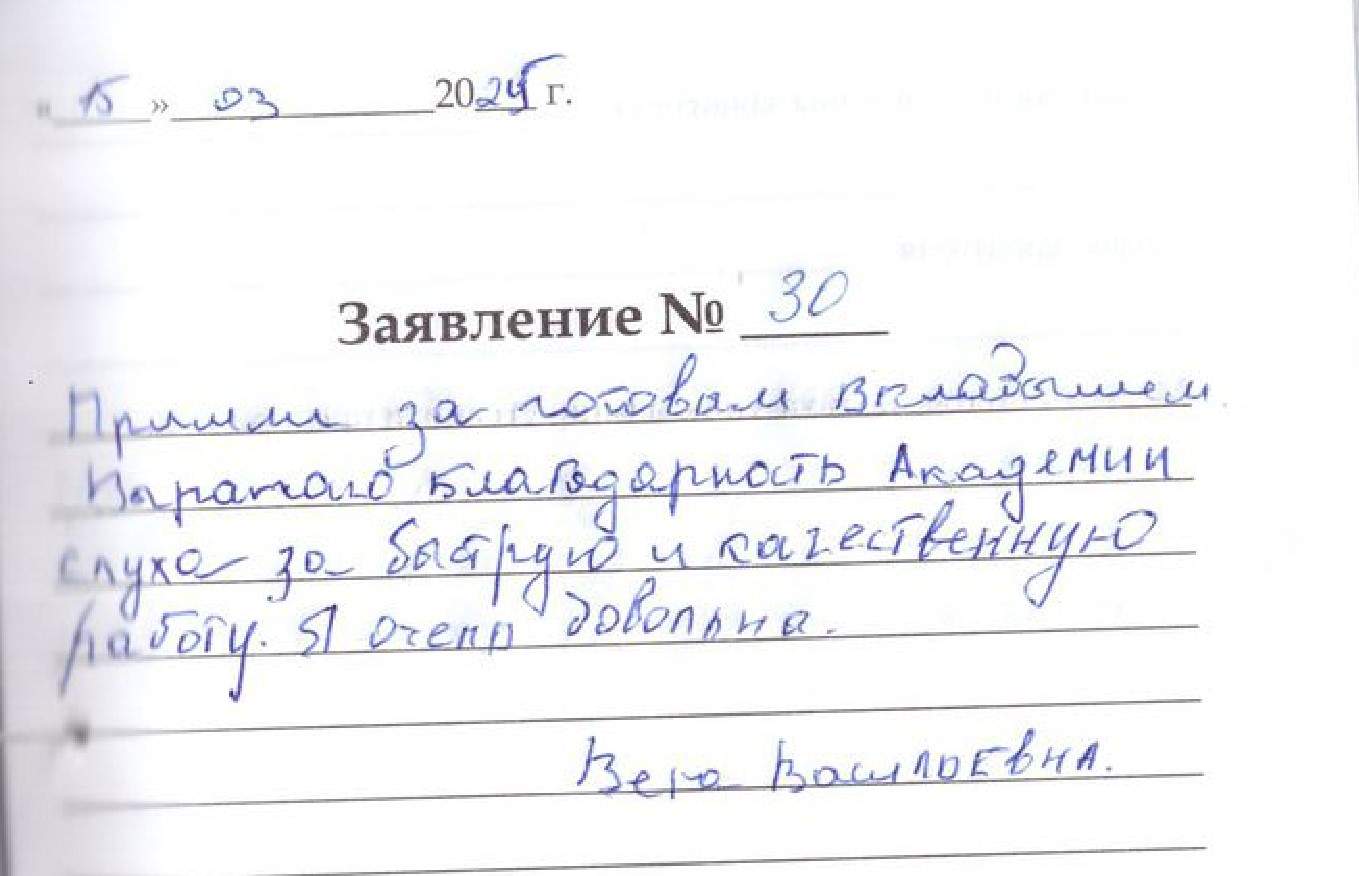 « 15 » 03 2024 г.
Заявление № 30
за готовым вкладышем
Выражаю благодарность Академии
слуха за быструю и качественную
работу. Я очень довольна.
Вера Васильевна.